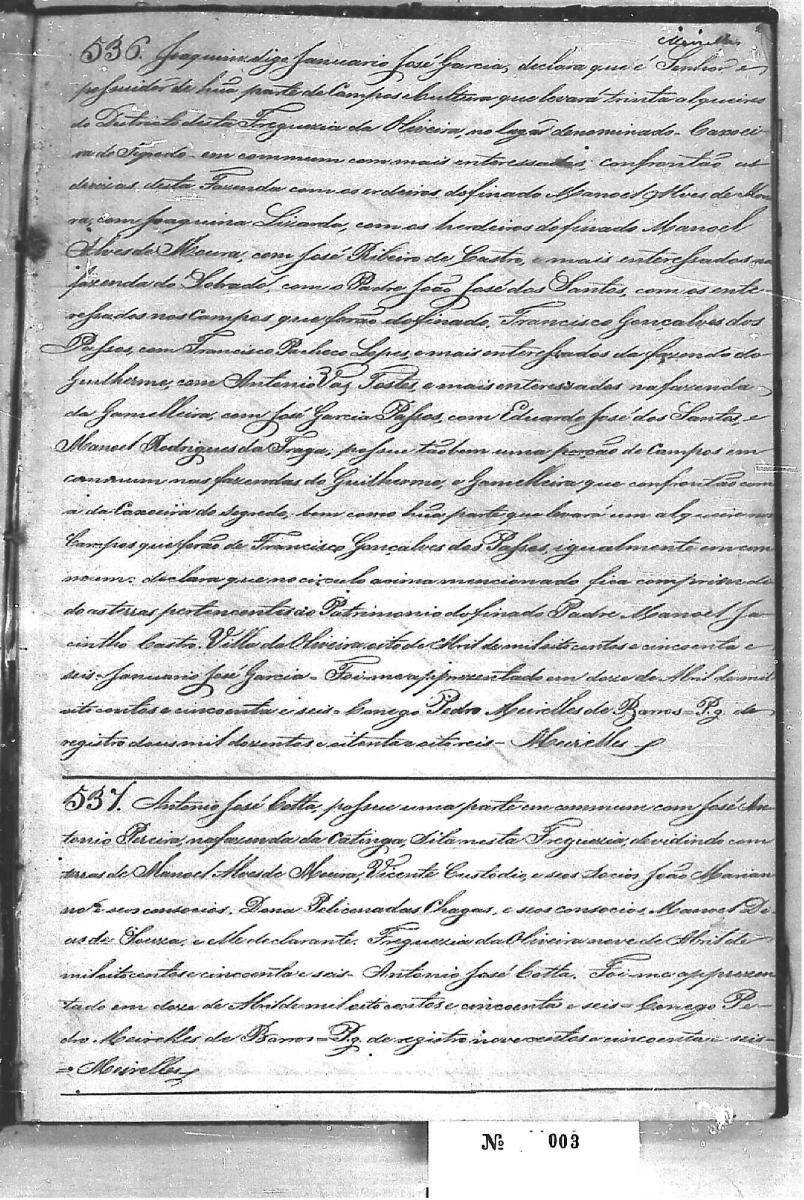 Meirelles
536. Joaquim digo Januario José Garcia, declara que é Senhor e
possuidor de hũa parte de Campos e cultura que levará trinta alqueires
do Districto desta Freguezia da Oliveira, no lugar denominado Caxoei-
ra do Segredo em commum com mais enteressados; confrontão as
divizas desta Fazenda com os erdeiros do finado Manoel Alves de Mou-
ra, com Joaquina Lizarda, com os herdeiros do finado Manoel
Alves de Moura, com José Ribeiro de Castro, e mais enteressados na
fazenda do Sobrado, com o Padre João José dos Santos, com os ente-
ressados nos Campos que forão do finado Francisco Goncalves dos
Passos, com Francisco Pacheco Lopes, e mais enteressados da fazenda do
Guilherme, com Antonio Vaz Tostes, e mais enteressados na fazenda
da Gamelleira, com José Garcia Passos, com Eduardo José dos Santos, e
Manoel Rodrigues da Fraga, possue tãobem uma porção de Campos em
commum nas fazendas do Guilherme, e Gamelleira que confrontão com
a da Caxoeira do segredo, bem como hũa parte que levará um alqueire nos
Campos que forão de Francisco Goncalves dos Passos, igualmente em com
moum: declara que no circulo acima mencionado fica comprihen di
do as terras pertencentes ao Patrimonio do finado Padre Manoel Ja-
cintho Castro. Villa da Oliveira oito de Abril de mil oito centos e cincoenta e
seis = Januario José Garcia = Foi-me apprezentado em doze de Abril de mil
oito centos e cincoenta e seis = Conego Pedro Meirelles de Barros = Pg. de
registro dous mil dozentos e oitenta e oito reis = Meirelles
537. Antonio José Cotta, possue uma parte em commum com José An-
tonio Pereira, na fazenda da Catinga, Sita nesta Freguezia, devidindo com
terras de Manoel Alves de Moura, Vicente Custodio, e seos Socios João Marian
no e seos consocios, Dona Policena das Chagas, e seos consocios, Manoel Di-
as de Souza, e elle declarante. Freguezia da Oliveira nove de Abril de
mil oito centos e cincoenta e seis = Antonio José Cotta. Foi-me apprezen
tado em doze de Abril de mil oito centos e cincoenta e seis = Conego Pe-
dro Meirelles de Barros = Pg. de registro nove centos e cincoenta e seis =
= Meirelles
Nº 003